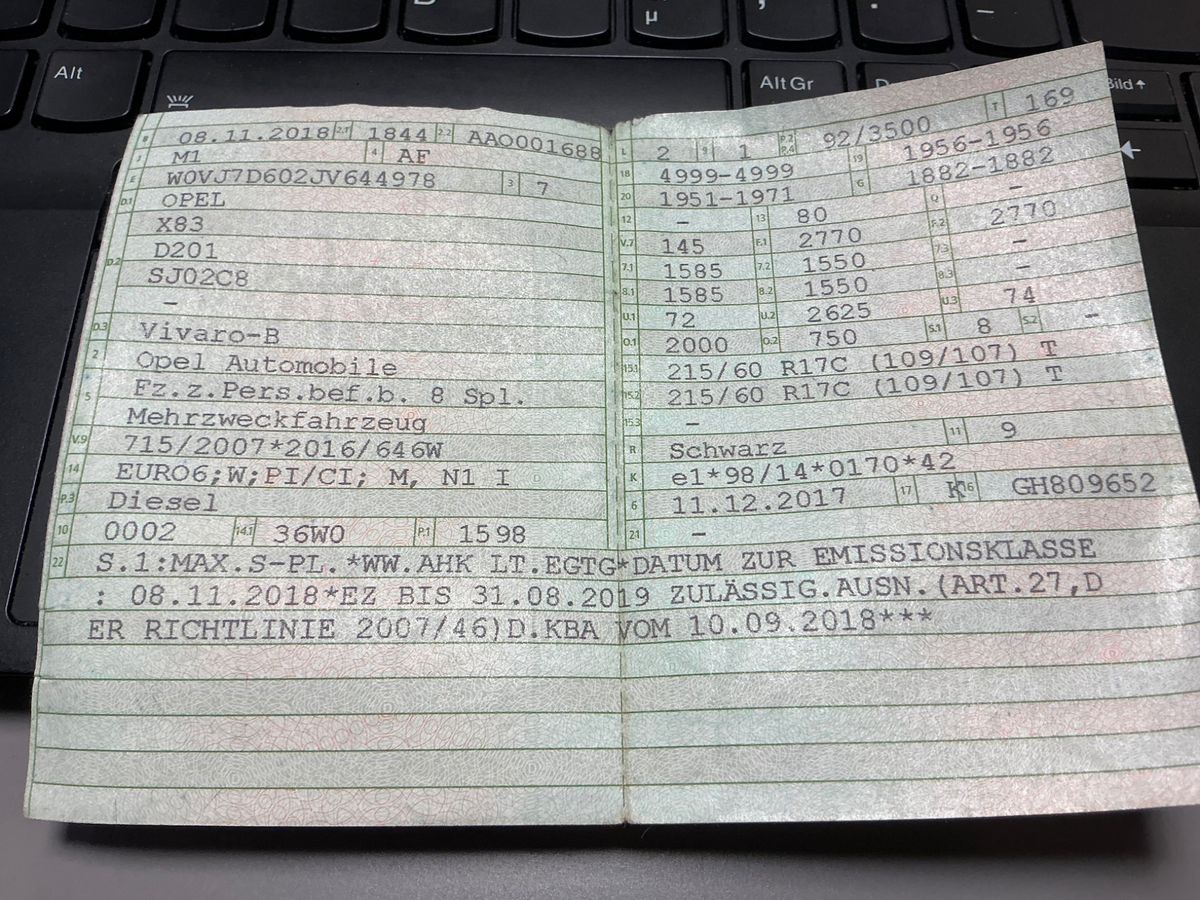 µ
Alt
Alt Gr
Bild
B 08.11.2018 2.1 1844 2.2 AAO001688
J M1 4 AF
E W0VJ7D602JV644978 3 7
D.1 OPEL
X83
D201
D.2 SJ02C8
–
D.3 Vivaro-B
2 Opel Automobile
5 Fz.z.Pers.bef.b. 8 Spl.
Mehrzweckfahrzeug
V.9 715/2007*2016/646W
14 EURO6;W;PI/CI; M, N1 I
P.3 Diesel
10 0002 14.1 36W0 P.1 1598
L 2 9 1 P.2 P.4 92/3500 T 169
18 4999-4999 19 1956-1956
20 1951-1971 G 1882-1882
12 – 13 80 Q –
V.7 145 F.1 2770 F.2 2770
7.1 1585 7.2 1550 7.3 –
8.1 1585 8.2 1550 8.3 –
U.1 72 U.2 2625 U.3 74
O.1 2000 O.2 750 S.1 8 S.2 –
15.1 215/60 R17C (109/107) T
15.2 215/60 R17C (109/107) T
15.3 –
R Schwarz 11 9
K e1*98/14*0170*42
6 11.12.2017 17 K 16 GH809652
21 –
22 S.1:MAX.S-PL.*WW.AHK LT.EGTG*DATUM ZUR EMISSIONSKLASSE
: 08.11.2018*EZ BIS 31.08.2019 ZULÄSSIG.AUSN.(ART.27,D
ER RICHTLINIE 2007/46)D.KBA VOM 10.09.2018***